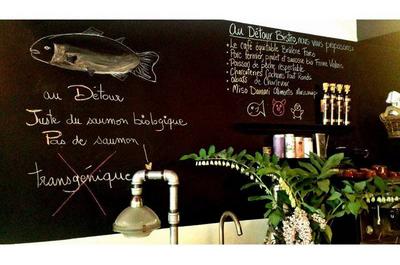 au Détour
Juste du saumon biologique
Pas de saumon
transgénique
au Détour Bistro, nous vous proposons:
• Le café équitable Brûlerie Faro
• Porc fermier, poulet et saucisse bio Ferme Vallons
• Poisson de pêche respectable
• Charcuteries Cochons Tout Ronds
de Charlevoix
• Miso Damari Aliments